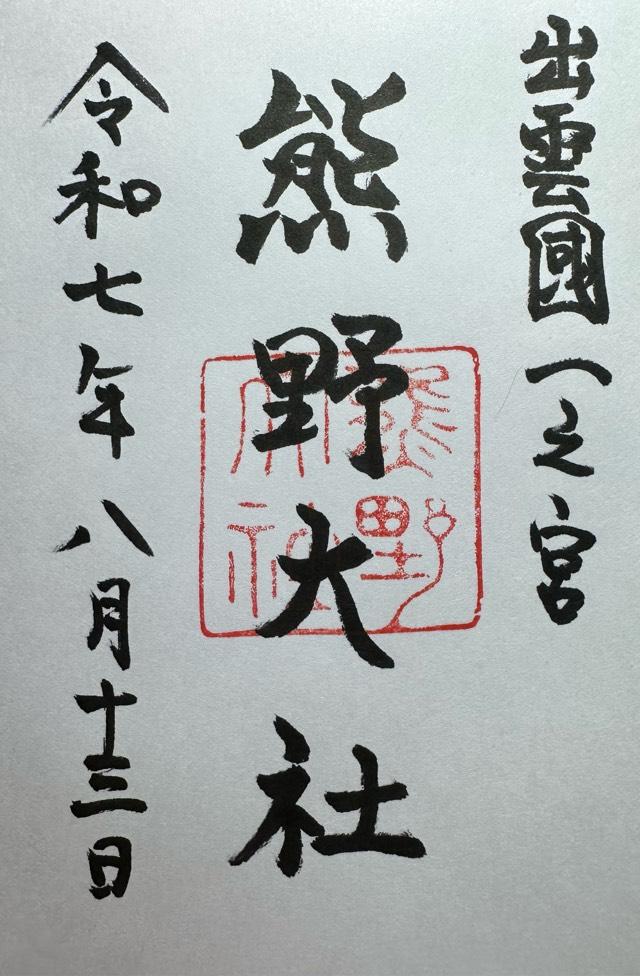 出雲國一之宮
熊野大社
熊野大社
令和七年八月十三日